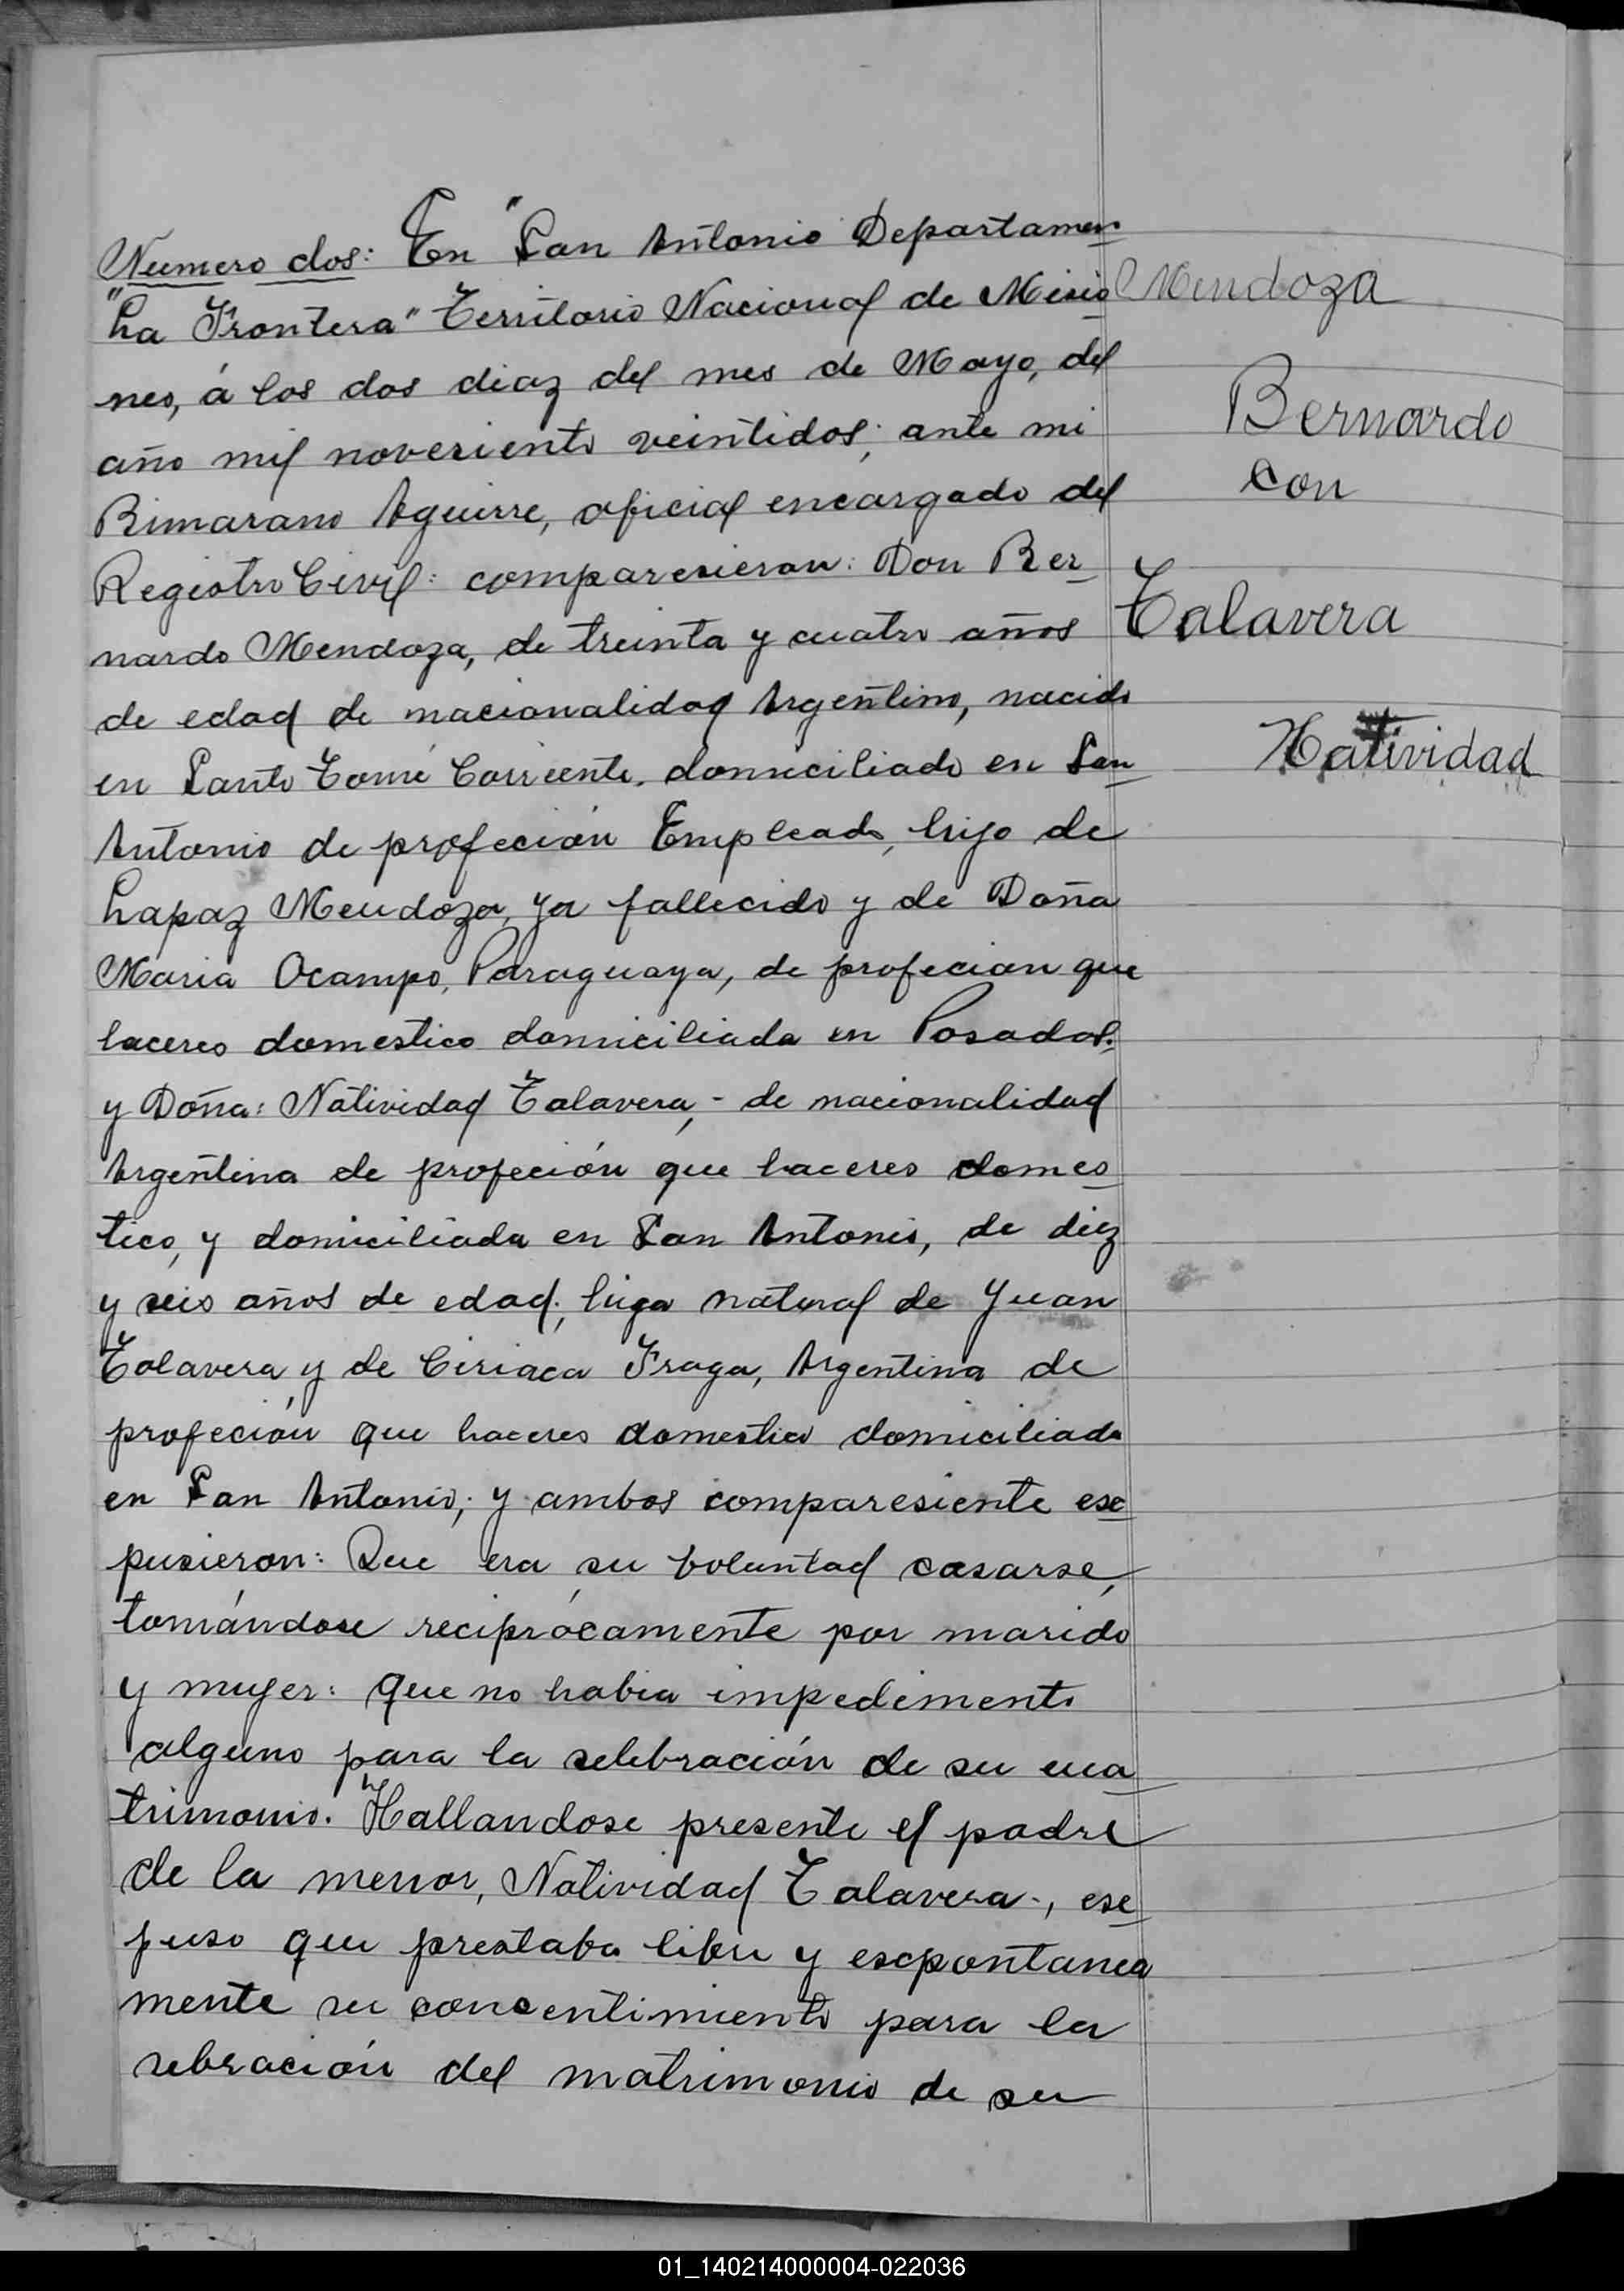 Numero dos: En "San Antonio Departamen
"La Frontera" Territorio Nacional de Misio
nes, á los dos diaz del mes de Mayo, del
año mil novesiento veintidos; ante mi
Rimarano Aguirre, oficial encargado del
Registro Civil: comparesieron: Don Ber
nardo Mendoza, de treinta y cuatro años
de edad de nacionalidad Argentino, nacido
en Santo Tomé Corriente, domiciliado en San
Antonio de profeción Empleado, hijo de
Lapaz Mendoza, ya fallecido y de Doña
Maria Ocampo, Paraguaya, de profecion que
haceres domestico domiciliada en Posadas.
y Doña: Natividad Talavera,- de nacionalidad
Argentina de profeción que haceres domes
tico, y domiciliada en San Antonio, de diez
y seis años de edad; hija natural de Juan
Talavera y de Ciriaca Fraga, Argentina de
profeción que haceres domestico domiciliada
en San Antonio; y ambos comparesiente esc
pusieron: Que era su voluntad casarse,
tomándose reciprócamente por marido
y mujer: que no habia impedimento
alguno para la selebración de su ma
trimonio. Hallandose presente el padre
de la menor, Natividad Talavera-, esc
puso que prestaba libre y escpontanea
mente su consentimiento para la
sebración del matrimonio de su
Mendoza
Bernardo
con
Talavera
Natividad
01_140214000004-022036